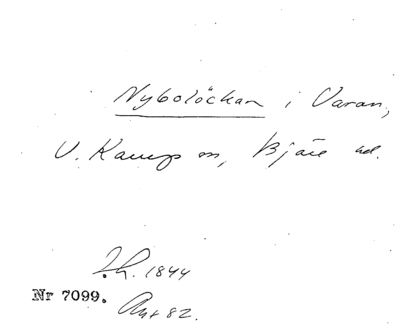 Nybolöckan i Varan,
V. Karup sn, Bjäre hd.
J.h. 1844
Nr 7099.
Ant 82.